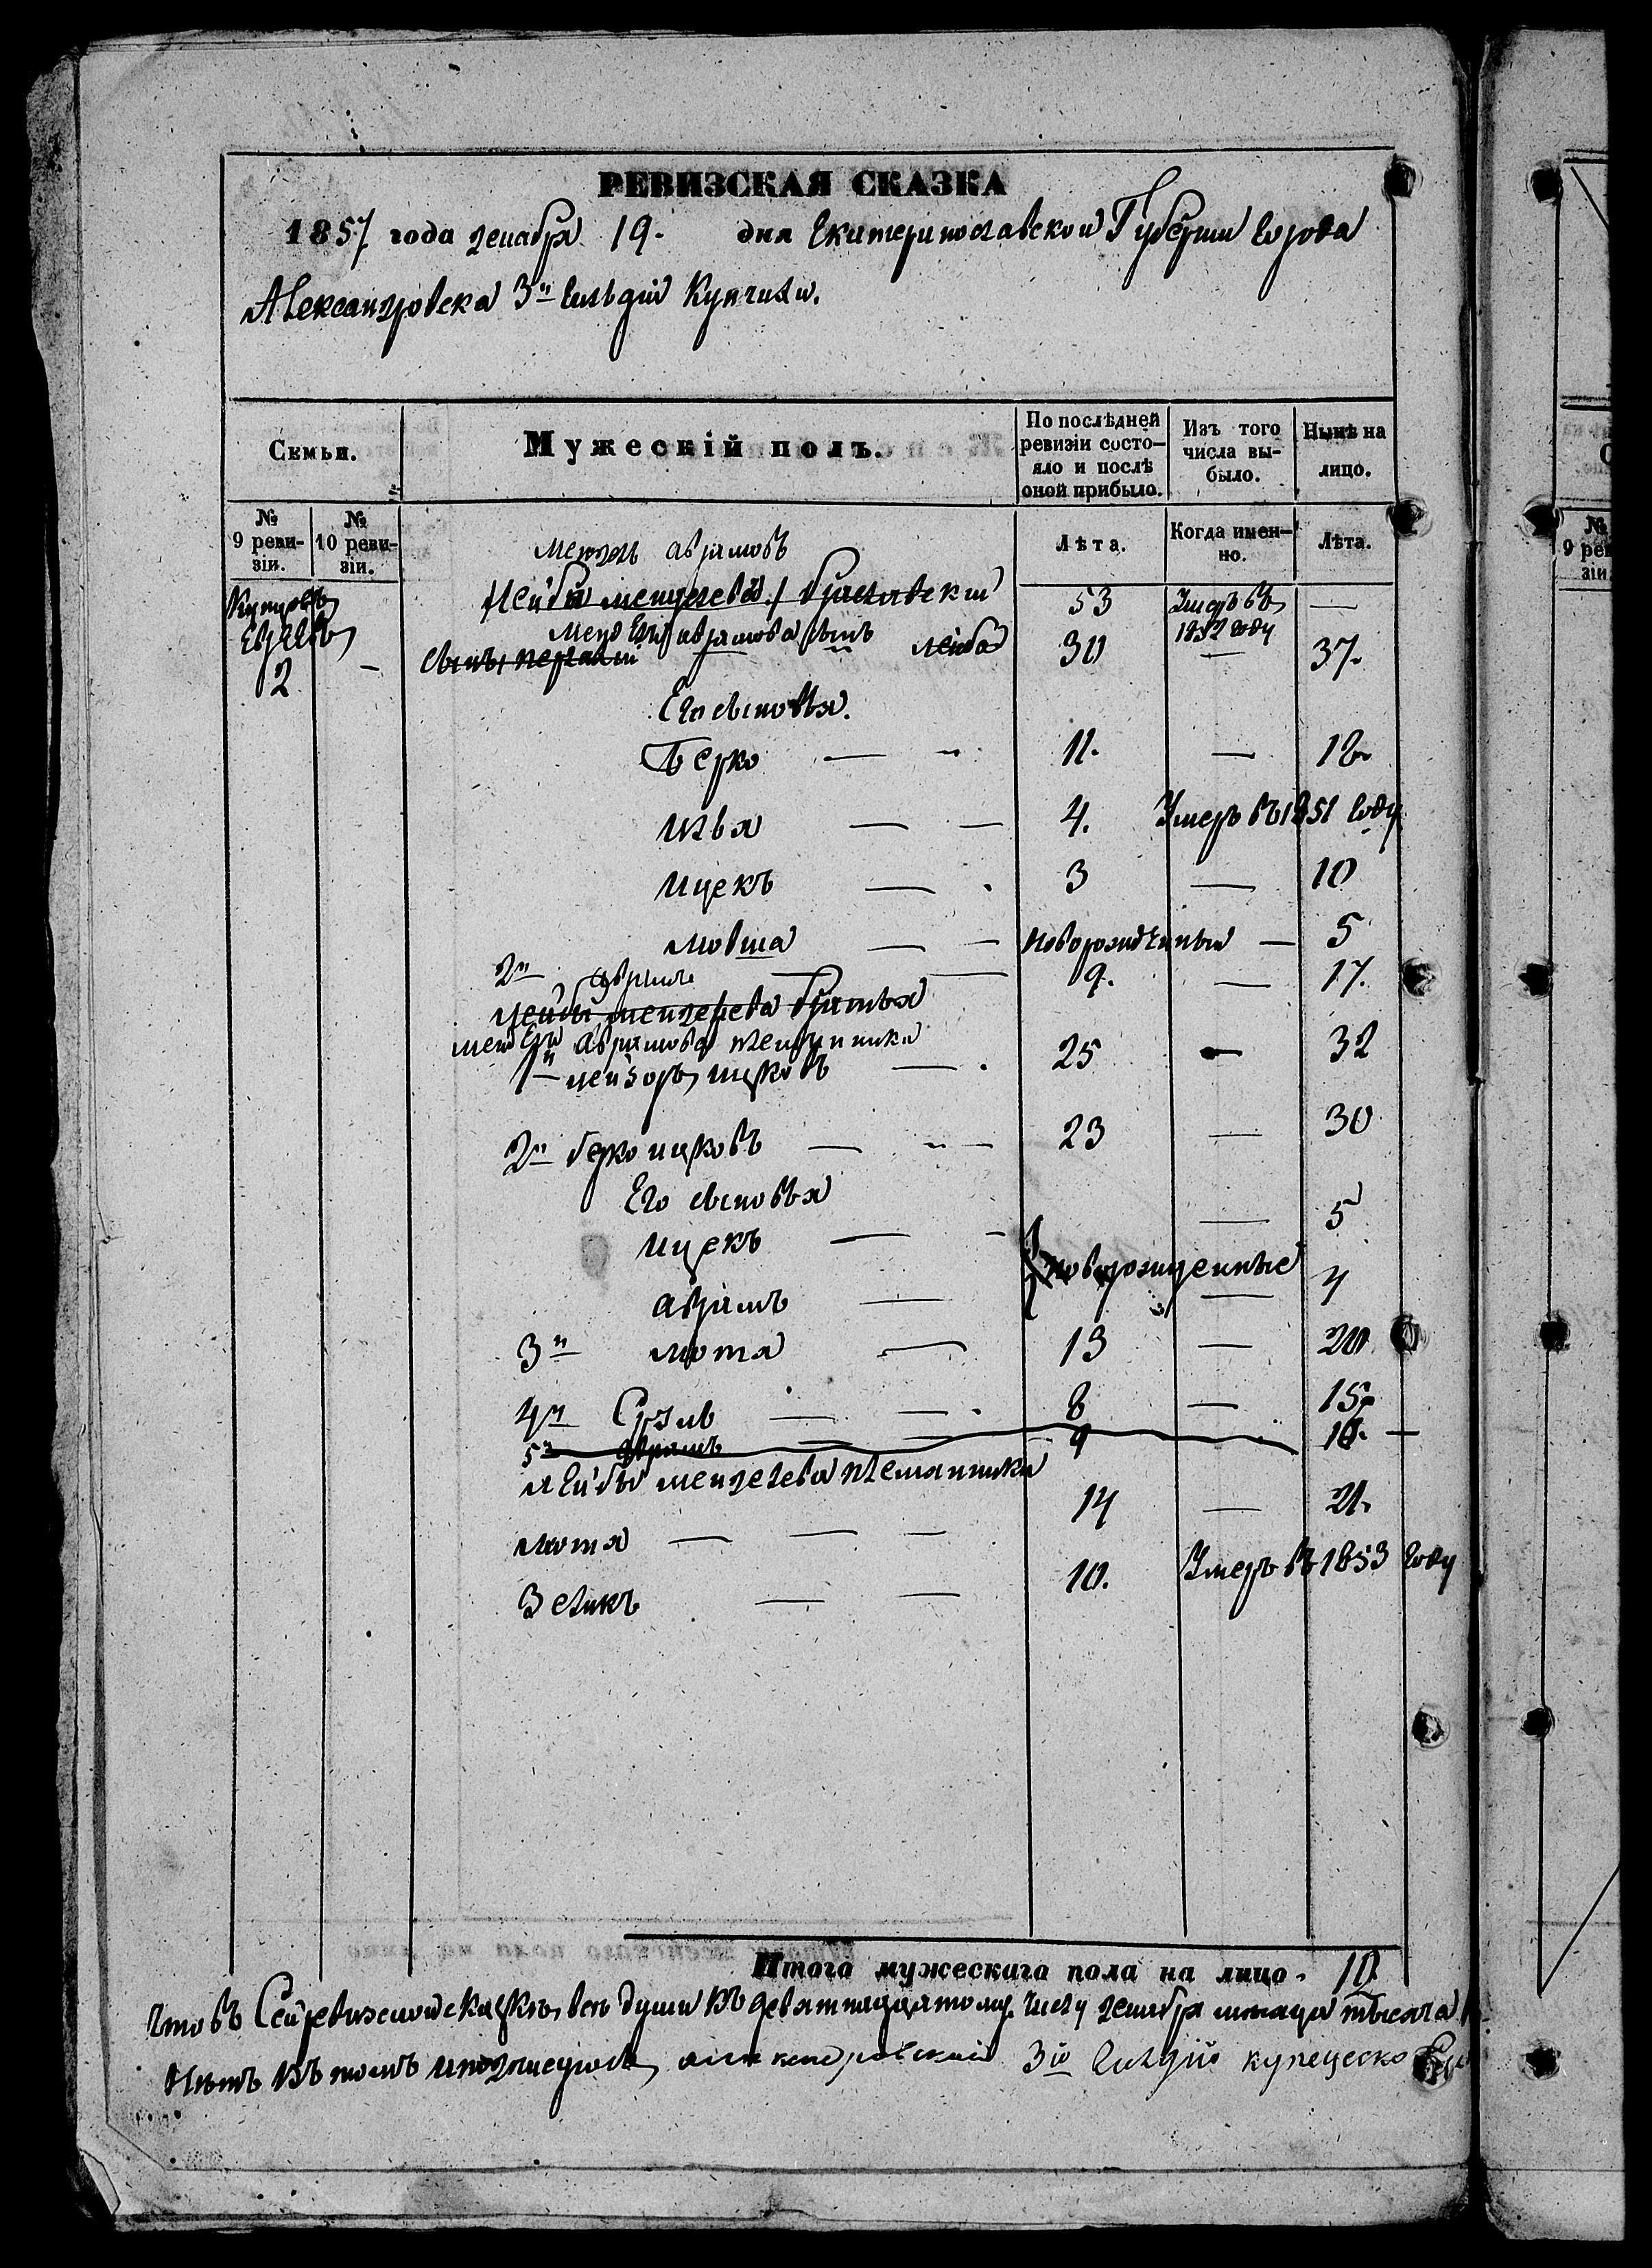 РЕВИЗСКАЯ СКАЗКА
1857 года декабря 19. дня Екатеринославской Губернии города
Александровска 3й гильдiи Купчихи.
Семьи.
Мужескiй полъ.
По послѣдней ревизiи состо-яло и послѣ оной прибыло.
Изъ того числа вы-было.
Нынѣ на лицо.
№ 9 реви-зiи.
№ 10 реви-зiи.
Лѣта.
Когда имен-но.
Лѣта.
Мендель Аврамовъ
Лейба Менделевъ 53 Умеръ въ 1852 году —
Купцовъ Евреевъ 2 —
сынъ первый Аврамова сынъ Лейба 30 — 37.
Его сыновья.
Берко — 11. — 18.
— 4. Умеръ въ 1851 году
Ицекъ — 3 — 10
Мовша — новорожденный — 5
2й Аврамъ — 9. — 17.
Лейбы Менделева братья
Аврамова племянники
1й Лейзоръ Ицковъ — 25 — 32
2й Берко Ицковъ — 23 — 30
Его сыновья
Ицекъ — новорожденные — 5
Аврамъ — — 4
3й Мотя — 13 — 20
4й Сруль — 8 — 15.
5й Аврамъ — 9 — 16.
Лейбы Менделева племянники
Мотя — 14 — 21.
Зеликъ — 10. Умеръ въ 1853 году
Итого мужескаго пола на лицо. 10
Что въ Сей ревизской сказкѣ, всѣ души къ девятнадцатому числу декабря мѣсяца тысяча
въ томъ и подписуюсь Александровский 3й гильдiи